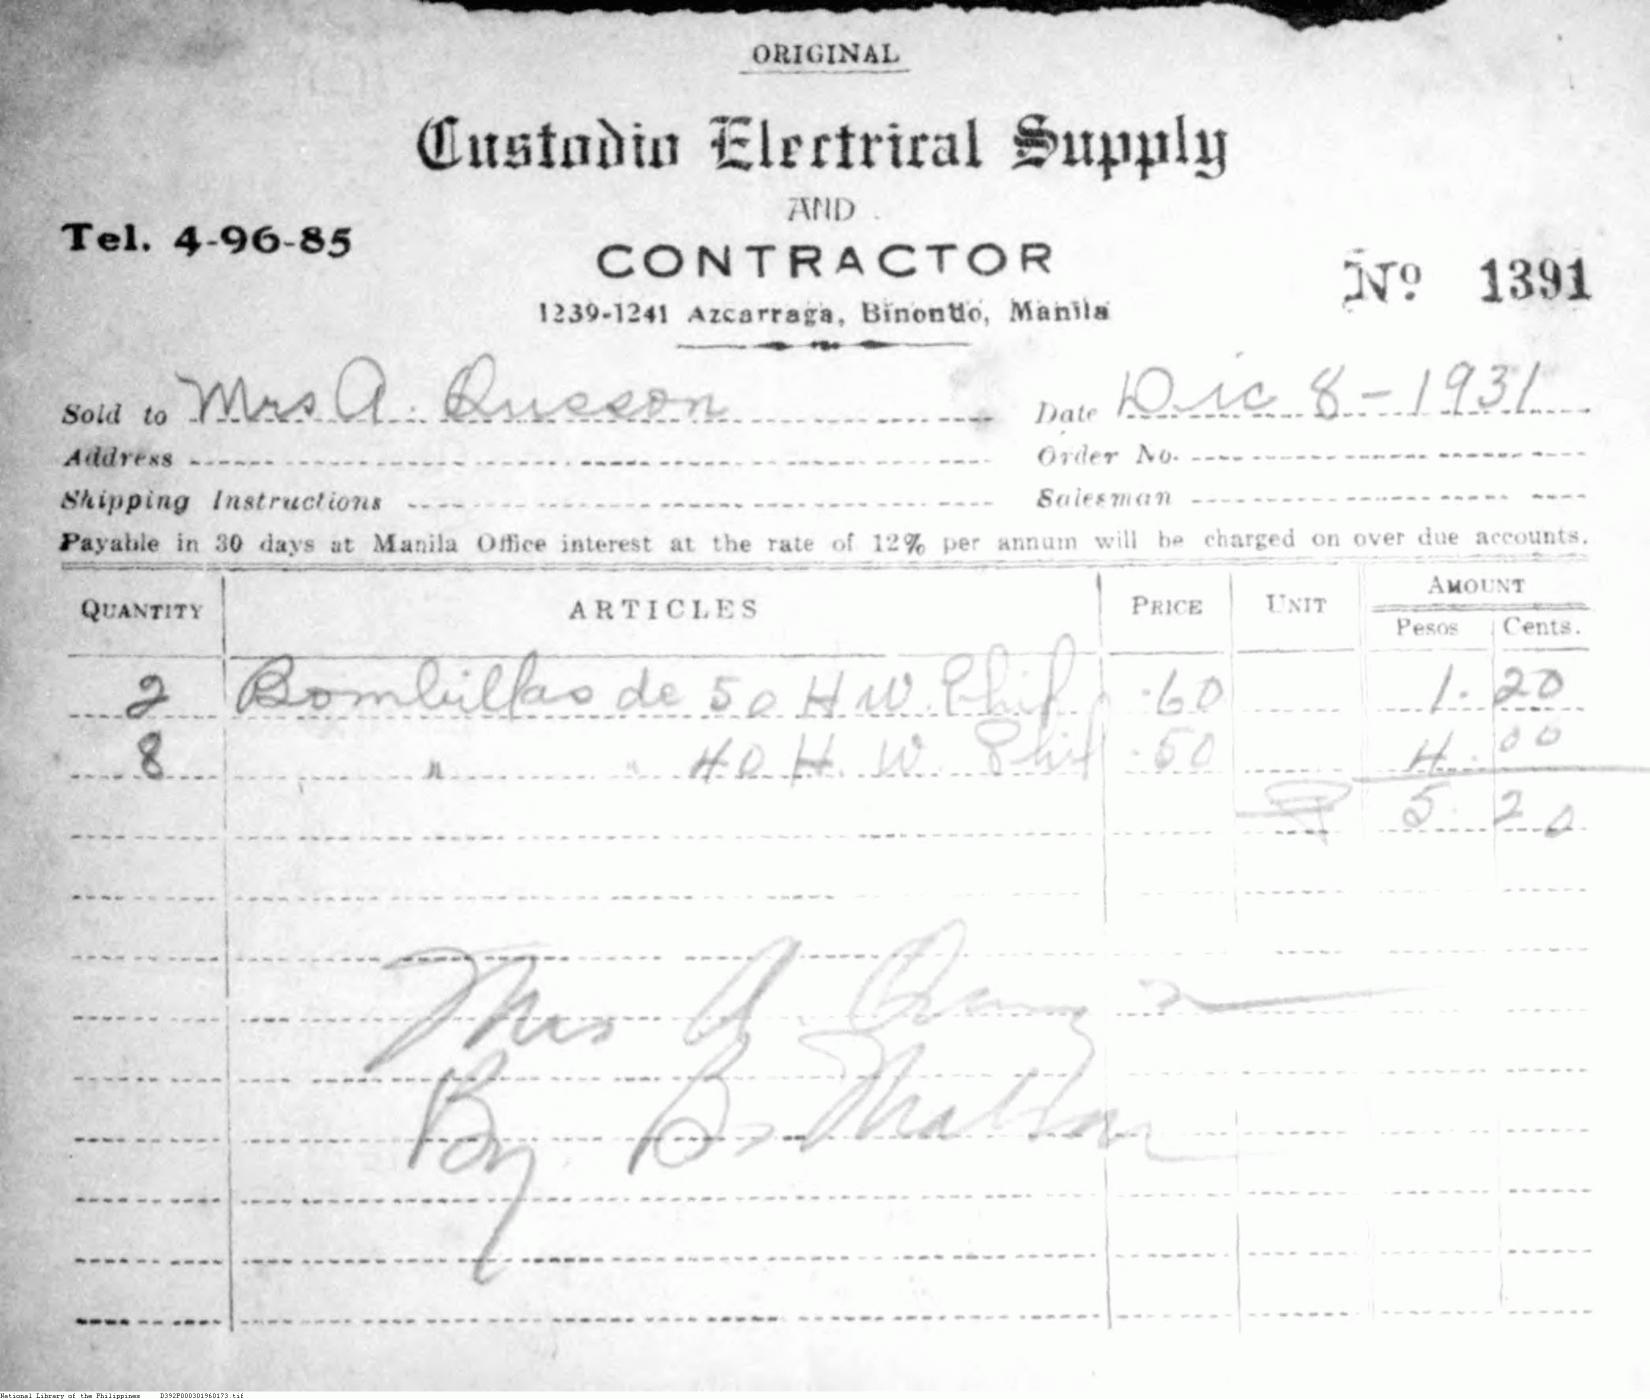 ORIGINAL
Custodio Electrical Supply
AND
CONTRACTOR
Tel. 4-96-85
1239-1241 Azcarraga, Binondo, Manila
No 1391
Sold to Mrs A. Quezon
Date Dic 8-1931
Address
Order No.
Shipping Instructions
Salesman
Payable in 30 days at Manila Office interest at the rate of 12% per annum will be charged on over due accounts.
QUANTITY ARTICLES PRICE UNIT AMOUNT
Pesos Cents.
2 Bombillas de 50 H W. Phil .60 1. 20
8 " " 40 H. W. Phil .50 4. 00
5. 20
Mrs A.
By B.
National Library of the Philippines D392P000301960173.tif